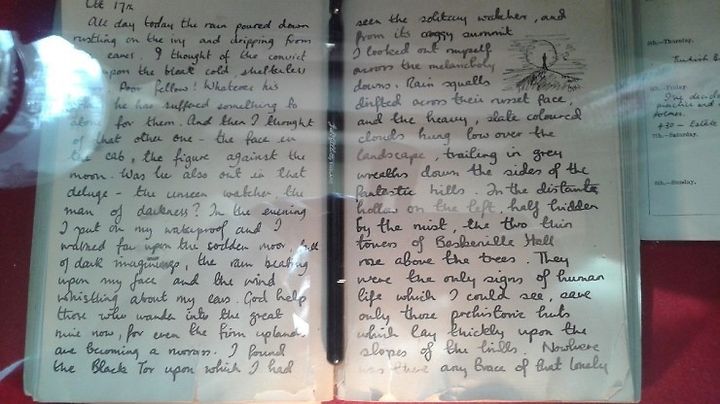 Oct 17th
All day today the rain poured down
rustling on the ivy and dripping from
eaves. I thought of the convict
upon the bleak cold, shelterless
Poor fellow! Whatever his
he has suffered something to
for them. And then I thought
of that other one - the face in
the cab, the figure against the
moon. Was he also out in that
deluge - the unseen watcher, the
man of darkness? In the evening
I put on my waterproof and I
walked far upon the sodden moor, full
of dark imaginings, the rain beating
upon my face and the wind
whistling about my ears. God help
those who wander into the great
mire now, for even the firm uplands
are becoming a morass. I found
the Black Tor upon which I had
seen the solitary watcher, and
from its craggy summit
I looked out myself
across the melancholy
downs. Rain squalls
drifted across their russet face,
and the heavy, slate coloured
clouds hung low over the
landscape, trailing in grey
wreaths down the sides of the
fantastic hills. In the distant
hollow on the left, half hidden
by the mist, the two thin
towers of Baskerville Hall
rose above the trees. They
were the only signs of human
life which I could see, save
only those prehistoric huts
which lay thickly upon the
slopes of the hills. Nowhere
was there any trace of that lonely
5th.—Thursday.
Turkish B
Friday
7th.—Saturday.
8th.—Sunday.